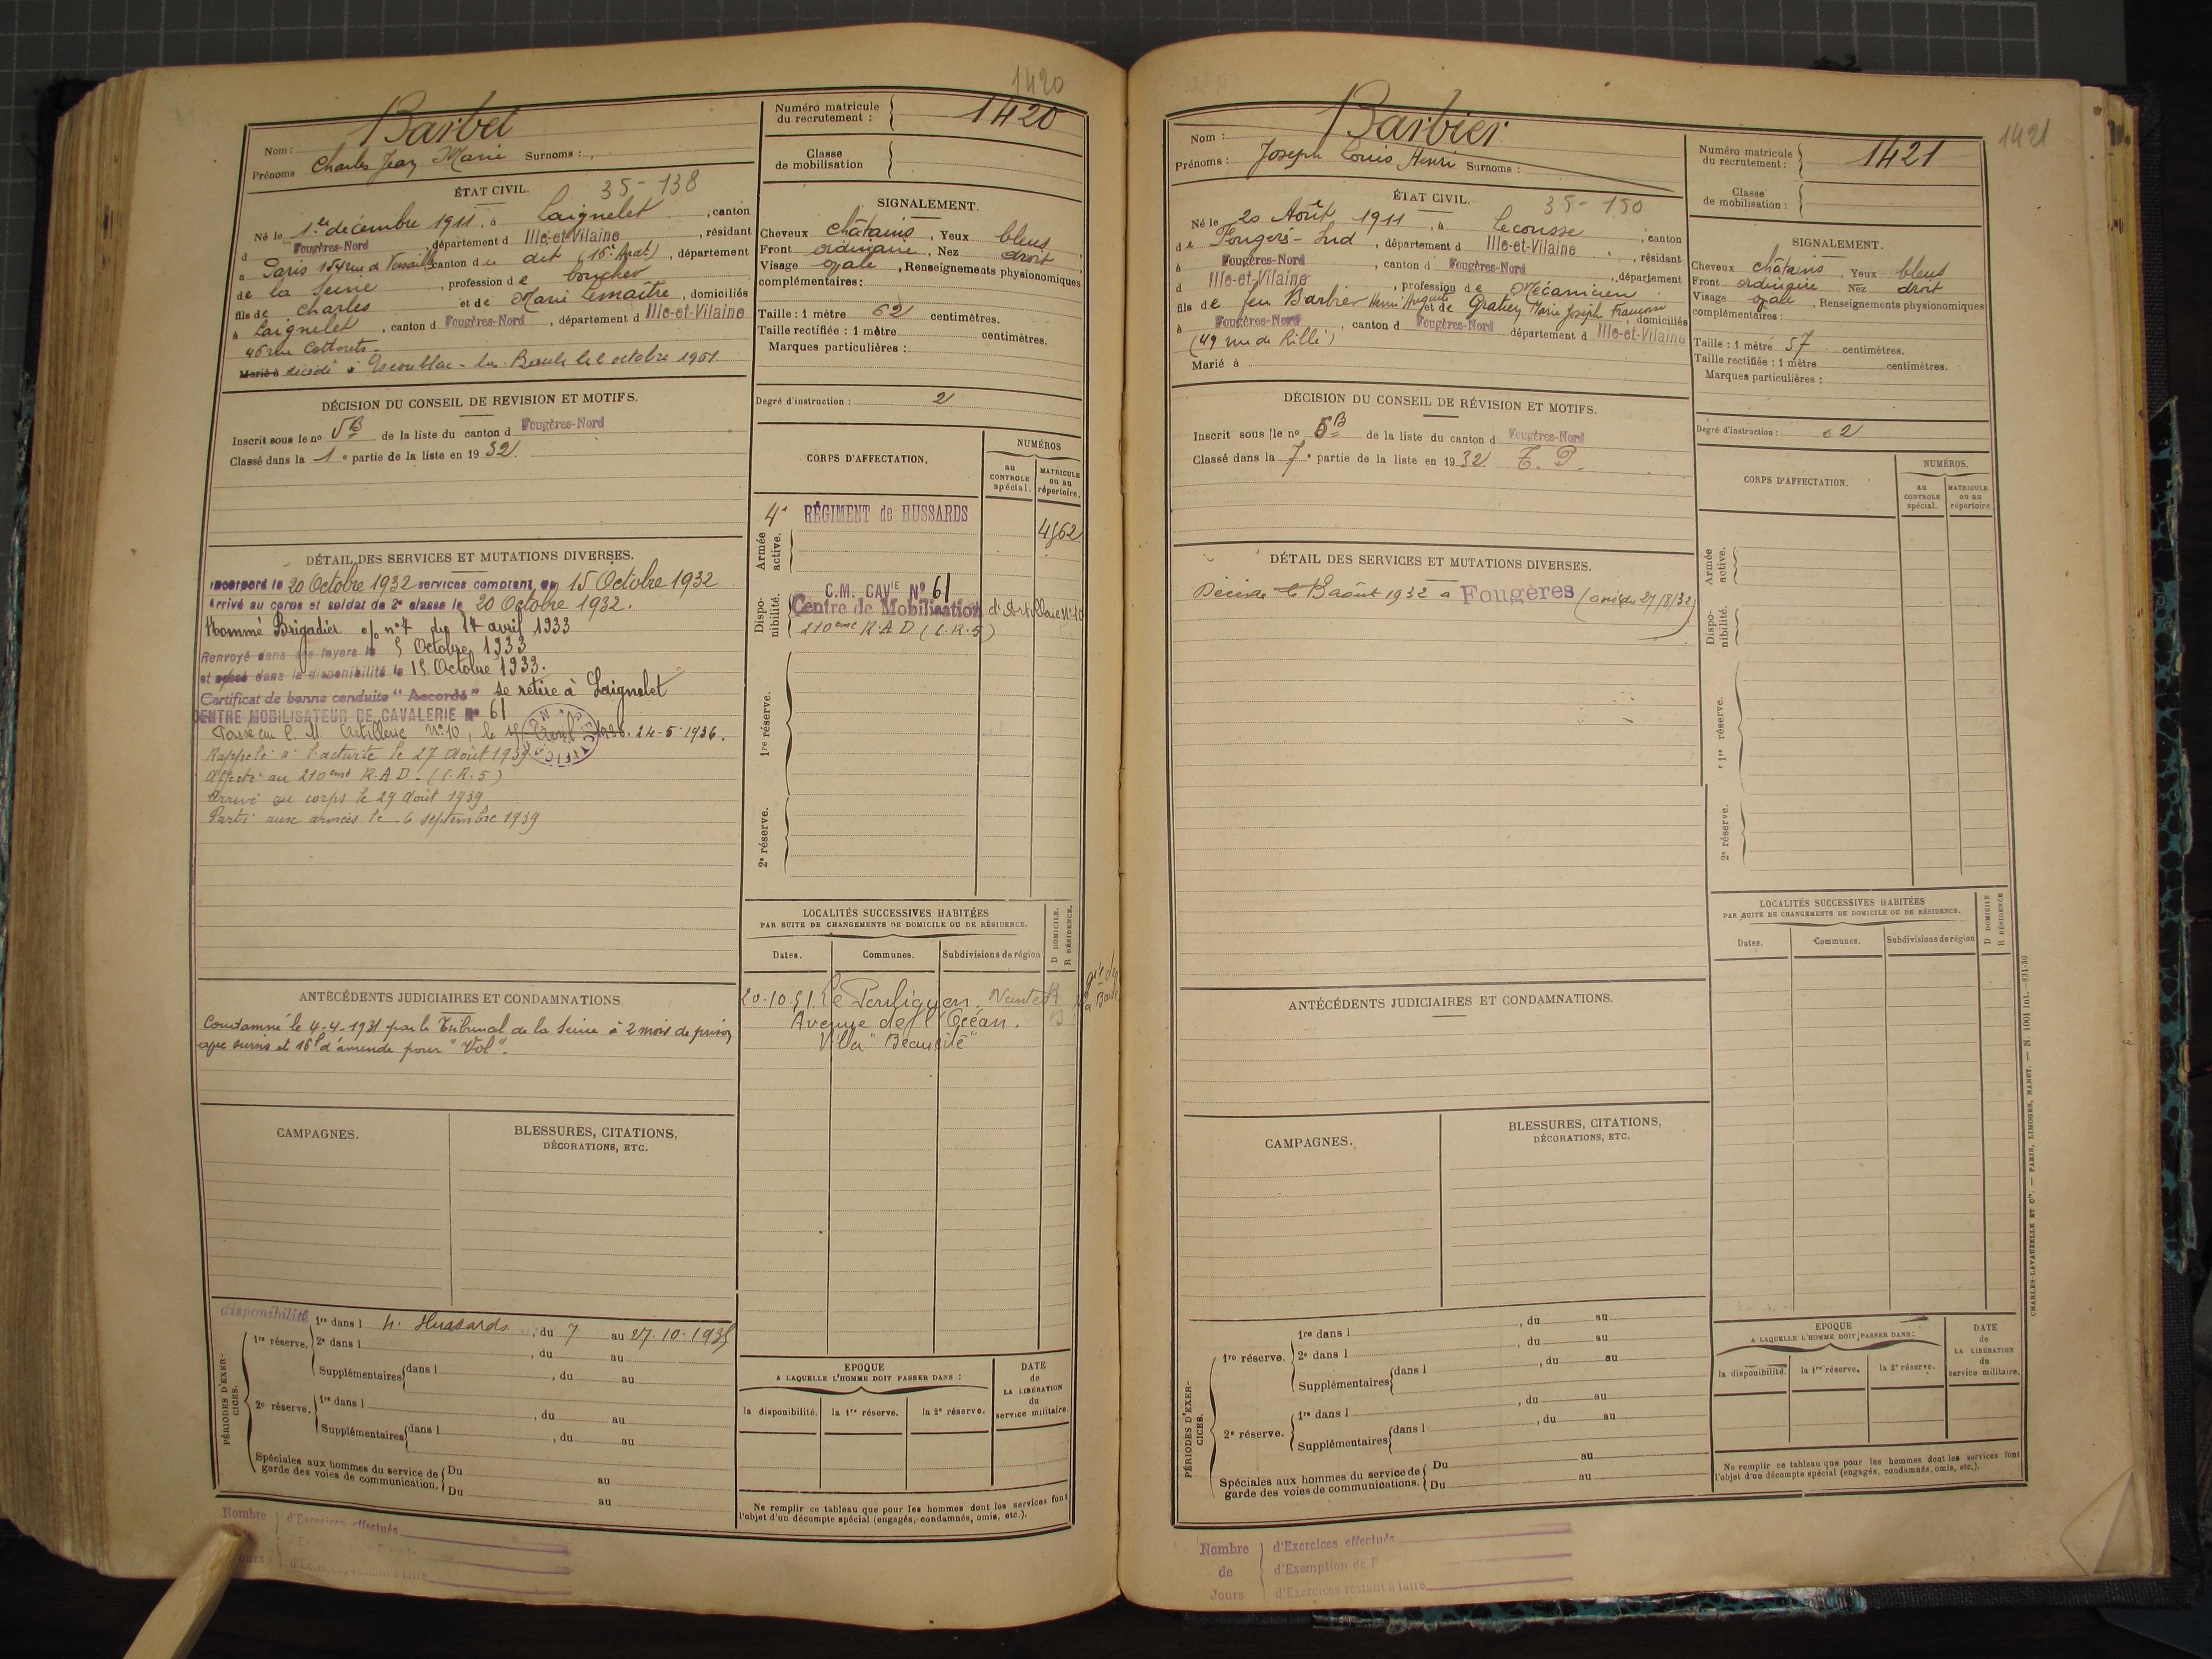 1420
Nom : Barbet
Prénoms Charles Jean Marie Surnoms :
Numéro matricule du recrutement : 1420
Classe de mobilisation
ÉTAT CIVIL. 35-138
Né le 1er décembre 1911, à Laignelet, canton
d Fougères-Nord, département d Ille-et-Vilaine, résidant
à Paris 154 rue de Versailles, canton du dit (16e Arrdt), département
de la Seine, profession de boucher
fils de Charles et de Marie Lemaître, domiciliés
à Laignelet, canton d Fougères-Nord, département d Ille-et-Vilaine
46 rue Cotterets
Marié à décédé à Escoublac-la-Baule le 2 octobre 1961
SIGNALEMENT.
Cheveux châtains, Yeux bleus
Front ordinaire, Nez droit
Visage ovale, Renseignements physionomiques
complémentaires :
Taille : 1 mètre 62 centimètres.
Taille rectifiée : 1 mètre centimètres.
Marques particulières :
Degré d'instruction : 2
DÉCISION DU CONSEIL DE REVISION ET MOTIFS.
Inscrit sous le no 5B de la liste du canton d Fougères-Nord
Classé dans la 1e partie de la liste en 1932.
CORPS D'AFFECTATION.
NUMÉROS
au CONTROLE spécial.
MATRICULE ou au répertoire.
Armée active.
4e RÉGIMENT de HUSSARDS 4562
Disponibilité.
C.M. CAVIE No 61
Centre de Mobilisation d'Artillerie No 10
210eme R.A.D (I.R.5)
1re réserve.
2e réserve.
DÉTAIL DES SERVICES ET MUTATIONS DIVERSES.
Incorporé le 20 Octobre 1932 services comptant du 15 Octobre 1932
Arrivé au corps et soldat de 2e classe le 20 Octobre 1932.
Nommé Brigadier o/ no 7 du 17 avril 1933
Renvoyé dans ses foyers le 5 Octobre 1933
et passé dans la disponibilité le 15 Octobre 1933.
Certificat de bonne conduite "Accordé" se retire à Laignelet
CENTRE MOBILISATEUR DE CAVALERIE No 61
Passé au C. M. Artillerie No 10, le Avril 1936. 24-5-1936.
Rappelé à l'activité le 27 Août 1939
Affecté au 210eme R.A.D. (I.R.5)
Arrivé au corps le 29 Août 1939
Parti aux armées le 6 septembre 1939
LOCALITÉS SUCCESSIVES HABITÉES
PAR SUITE DE CHANGEMENTS DE DOMICILE OU DE RÉSIDENCE.
Dates. Communes. Subdivisions de région
D DOMICILE. R RÉSIDENCE.
20-10-51. Le Pouliguen. Nantes R
Avenue de l'Océan.
Villa "Beausite"
ANTÉCÉDENTS JUDICIAIRES ET CONDAMNATIONS.
Condamné le 4-4-1931 par le Tribunal de la Seine à 2 mois de prison
avec sursis et 16f d'amende pour "Vol".
CAMPAGNES.
BLESSURES, CITATIONS, DÉCORATIONS, ETC.
PÉRIODES D'EXERCICES.
disponibilité
1re réserve. 1re dans l 4e Hussards, du 7 au 27-10-1935
2e dans l , du au
Supplémentaires dans l , du au
2e réserve. 1re dans l , du au
Supplémentaires dans l , du au
Spéciales aux hommes du service de garde des voies de communication. Du au
Du au
EPOQUE
A LAQUELLE L'HOMME DOIT PASSER DANS :
la disponibilité. la 1re réserve. la 2e réserve.
DATE de LA LIBÉRATION du service militaire.
Ne remplir ce tableau que pour les hommes dont les services font
l'objet d'un décompte spécial (engagés, condamnés, omis, etc.).
Nombre
d'Exercices effectués
Jours
d'Exercices restant à faire
1421
Nom : Barbier
Prénoms : Joseph Louis Henri Surnoms :
Numéro matricule du recrutement : 1421
Classe de mobilisation :
ÉTAT CIVIL. 35-150
Né le 20 Août 1911, à Lecousse, canton
de Fougères-Sud, département d Ille-et-Vilaine, résidant
à Fougères-Nord, canton d Fougères-Nord, département
d Ille-et-Vilaine, profession de Mécanicien
fils de feu Barbier Henri Auguste et de Gratien Marie Joseph Françoise, domiciliés
à Fougères-Nord, canton d Fougères-Nord département d Ille-et-Vilaine
(49 rue de Rillé)
Marié à
SIGNALEMENT.
Cheveux châtains, Yeux bleus
Front ordinaire Nez droit
Visage ovale, Renseignements physionomiques
complémentaires :
Taille : 1 mètre 57 centimètres.
Taille rectifiée : 1 mètre centimètres.
Marques particulières :
Degré d'instruction : 2
DÉCISION DU CONSEIL DE RÉVISION ET MOTIFS.
Inscrit sous le no 6B de la liste du canton d Fougères-Nord
Classé dans la 7e partie de la liste en 1932. T. P.
CORPS D'AFFECTATION.
NUMÉROS.
au CONTROLE spécial.
MATRICULE ou au répertoire
Armée active.
Disponibilité.
1re réserve.
2e réserve.
DÉTAIL DES SERVICES ET MUTATIONS DIVERSES.
Décédé le 13 août 1932 à Fougères (avis du 27/8/32)
LOCALITÉS SUCCESSIVES HABITÉES
PAR SUITE DE CHANGEMENTS DE DOMICILE OU DE RÉSIDENCE.
Dates. Communes. Subdivisions de région
D DOMICILE R RÉSIDENCE
ANTÉCÉDENTS JUDICIAIRES ET CONDAMNATIONS.
CAMPAGNES.
BLESSURES, CITATIONS, DÉCORATIONS, ETC.
PÉRIODES D'EXERCICES.
1re réserve. 1re dans l , du au
2e dans l , du au
Supplémentaires dans l , du au
2e réserve. 1re dans l , du au
Supplémentaires dans l , du au
Spéciales aux hommes du service de garde des voies de communications. Du au
Du au
EPOQUE
A LAQUELLE L'HOMME DOIT PASSER DANS :
la disponibilité. la 1re réserve. la 2e réserve.
DATE de LA LIBÉRATION du service militaire.
Ne remplir ce tableau que pour les hommes dont les services font
l'objet d'un décompte spécial (engagés, condamnés, omis, etc.).
Nombre de Jours
d'Exercices effectués
d'Exemption de P
d'Exercices restant à faire
CHARLES-LAVAUZELLE ET Cie. — PARIS, LIMOGES, NANCY. — N. 1001 Int.—831-30